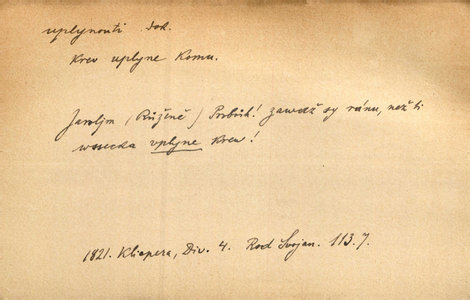 uplynouti dok.
Krev uplyne komu.
Jaroljm (Růženě) Probůh! zawaž sy ránu, než ti
wssecka uplyne krew!
1821. Klicpera, Div. 4. Rod Svojan. 113.7.